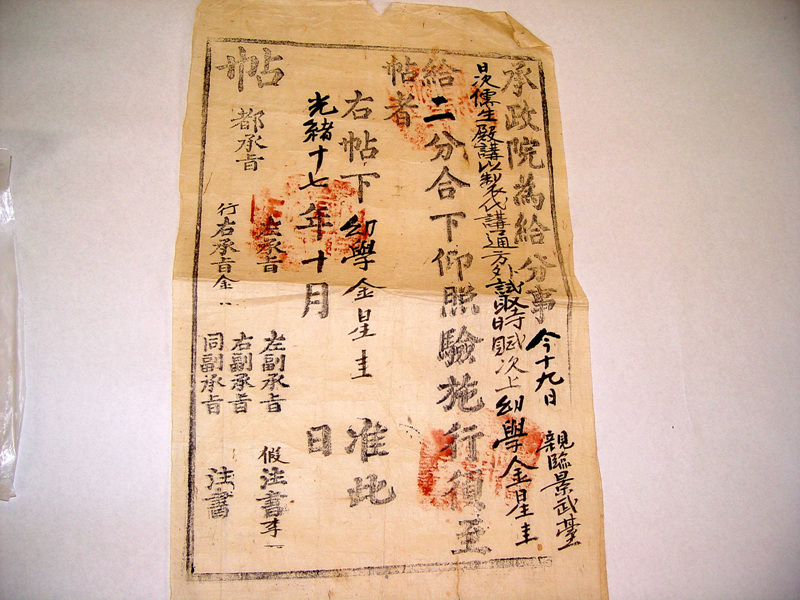 承政院爲給分事今十九日 親臨景武臺
日次儒生殿講以製代講通方外試取時賦次上幼學金星圭
給二分合下仰照驗施行須至
帖者
右帖下幼學金星圭 准此
光緖十七年十月 日
帖
都承旨
左承旨
行右承旨金
左副承旨
右副承旨
同副承旨
假注書李
注書